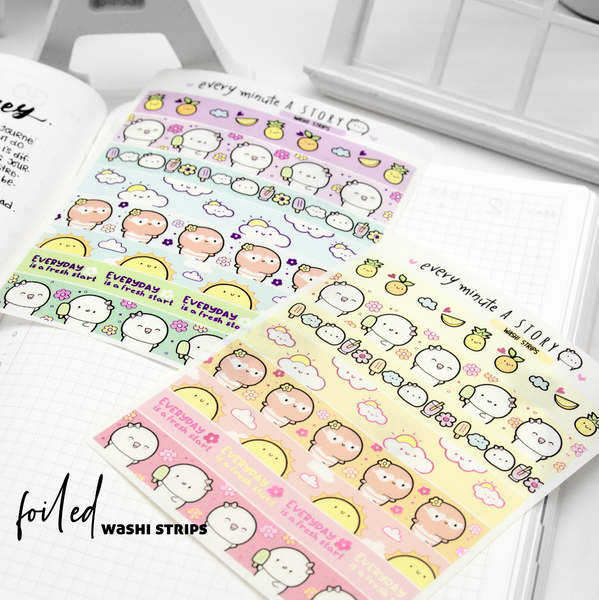 every minute A STORY
WASHI STRIPS
EVERYDAY
is a fresh start
EVERYDAY
is a fresh start
EVERYDAY
is a fresh start
every minute A STORY
WASHI STRIPS
EVERYDAY
is a fresh start
EVERYDAY
is a fresh start
EVERYDAY
is a fresh start
EVERYDAY
is a fresh start
foiled WASHI STRIPS